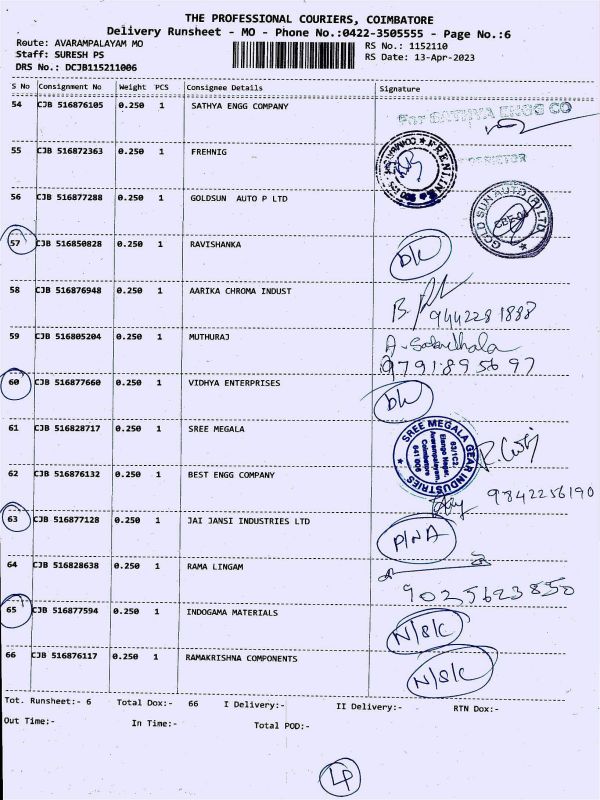 THE PROFESSIONAL COURIERS, COIMBATORE
Delivery Runsheet - MO - Phone No.:0422-3505555 - Page No.:6
Route: AVARAMPALAYAM MO
RS No.: 1152110
Staff: SURESH PS
RS Date: 13-Apr-2023
DRS No.: DCJB115211006
S No Consignment No Weight PCS Consignee Details Signature
54 CJB 516876105 0.250 1 SATHYA ENGG COMPANY
For SATHYA ENGG CO
55 CJB 516872363 0.250 1 FREHNIG
56 CJB 516877288 0.250 1 GOLDSUN AUTO P LTD
GOLD SUN AUTO (P) LTD
57 CJB 516850828 0.250 1 RAVISHANKA
DL
58 CJB 516876948 0.250 1 AARIKA CHROMA INDUST
9442281888
59 CJB 516805204 0.250 1 MUTHURAJ
9791895697
60 CJB 516877660 0.250 1 VIDHYA ENTERPRISES
DL
61 CJB 516828717 0.250 1 SREE MEGALA
SREE MEGALA GEAR INDUSTRIES
63/1C2,
Elango Nagar,
Avarampalayam,
Coimbatore
641 006
62 CJB 516876132 0.250 1 BEST ENGG COMPANY
9842256190
63 CJB 516877128 0.250 1 JAI JANSI INDUSTRIES LTD
P/NA
64 CJB 516828638 0.250 1 RAMA LINGAM
9025623850
65 CJB 516877594 0.250 1 INDOGAMA MATERIALS
N/S/C
66 CJB 516876117 0.250 1 RAMAKRISHNA COMPONENTS
N/S/C
Tot. Runsheet:- 6 Total Dox:- 66 I Delivery:- II Delivery:- RTN Dox:-
Out Time:- In Time:- Total POD:-
LP